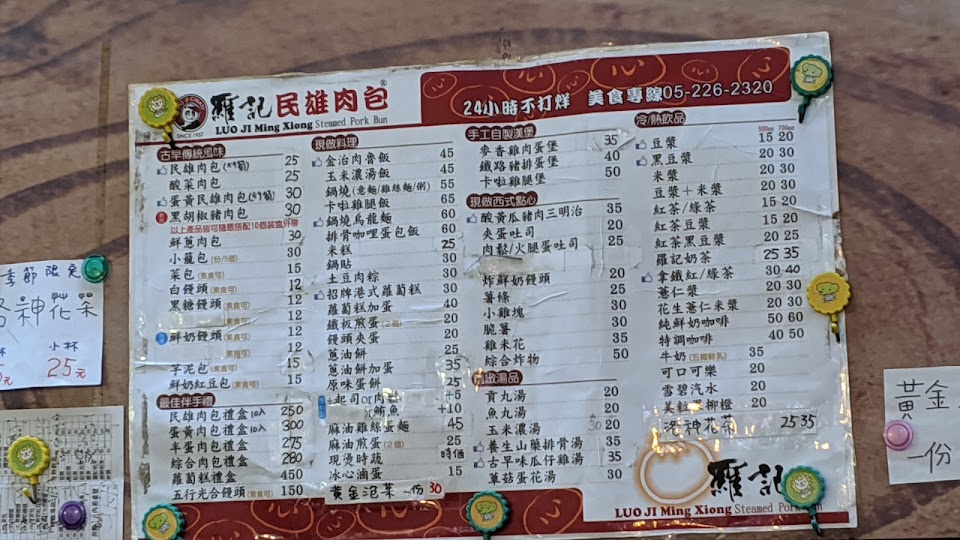 羅記民雄肉包®
LUO JI Ming Xiong Steamed Pork Bun
SINCE 1957
24小時不打烊 美食專線05-226-2320
古早傳統風味
民雄肉包 25
酸菜肉包 25
蛋黃民雄肉包 30
黑胡椒豬肉包 30
以上產品皆可隨意搭配10個裝盒外帶
鮮蔥肉包 30
小籠包(份/5個) 30
菜包(素食可) 15
白饅頭(素食可) 12
黑糖饅頭(素食可) 12
(素食可) 12
鮮奶饅頭(素食可) 12
(素食可) 12
芋泥包(素食可) 15
鮮奶紅豆包(素食可) 15
最佳伴手禮
民雄肉包禮盒10入 250
蛋黃肉包禮盒10入 300
半蛋肉包禮盒 275
綜合肉包禮盒 280
蘿蔔糕禮盒 450
五行光合饅頭(素食可) 150
現做料理
金治肉魯飯 45
玉米濃湯飯 45
鍋燒(意麵/雞絲麵/粥) 55
卡啦雞腿飯 65
鍋燒烏龍麵 60
排骨咖哩蛋包飯 60
米糕 25
鍋貼 30
土豆肉粽 30
招牌港式蘿蔔糕 30
蘿蔔糕加蛋 40
鐵板煎蛋(2個) 20
饅頭夾蛋 20
蔥油餅 25
蔥油餅加蛋 35
原味蛋餅 25
起司or肉鬆 +5
or鮪魚 +10
麻油雞絲蛋麵 45
麻油煎蛋(2個) 25
現燙時蔬 時價
冰心滷蛋 15
黃金泡菜 一份 30
手工自製漢堡
麥香雞肉蛋堡 35
鐵路豬排蛋堡 40
卡啦雞腿堡 50
現做西式點心
酸黃瓜豬肉三明治 35
夾蛋吐司 20
肉鬆/火腿蛋吐司 25
炸鮮奶饅頭 20
薯條 25
小雞塊 30
脆薯 20
雞米花 35
綜合炸物 50
精緻湯品
貢丸湯 20
魚丸湯 20
玉米濃湯 30 20
養生山藥排骨湯 35
古早味瓜仔雞湯 35
草菇蛋花湯 30
冷/熱飲品
500cc 700cc
豆漿 15 20
黑豆漿 20 30
米漿 20 30
豆漿+米漿 20 30
紅茶/綠茶 15 20
紅茶豆漿 15 20
紅茶黑豆漿 20 25
羅記奶茶 25 35
拿鐵紅/綠茶 30 40
薏仁漿 20 30
花生薏仁米漿 20 30
純鮮奶咖啡 50 60
特調咖啡 40 50
牛奶(五瓣鮮乳) 35
可口可樂 20
雪碧汽水 20
美粒果柳橙 20
洛神花茶 25 35
羅記
LUO JI Ming Xiong Steamed Pork Bun
季節限定
洛神花茶
小杯
25元
黃金
一份